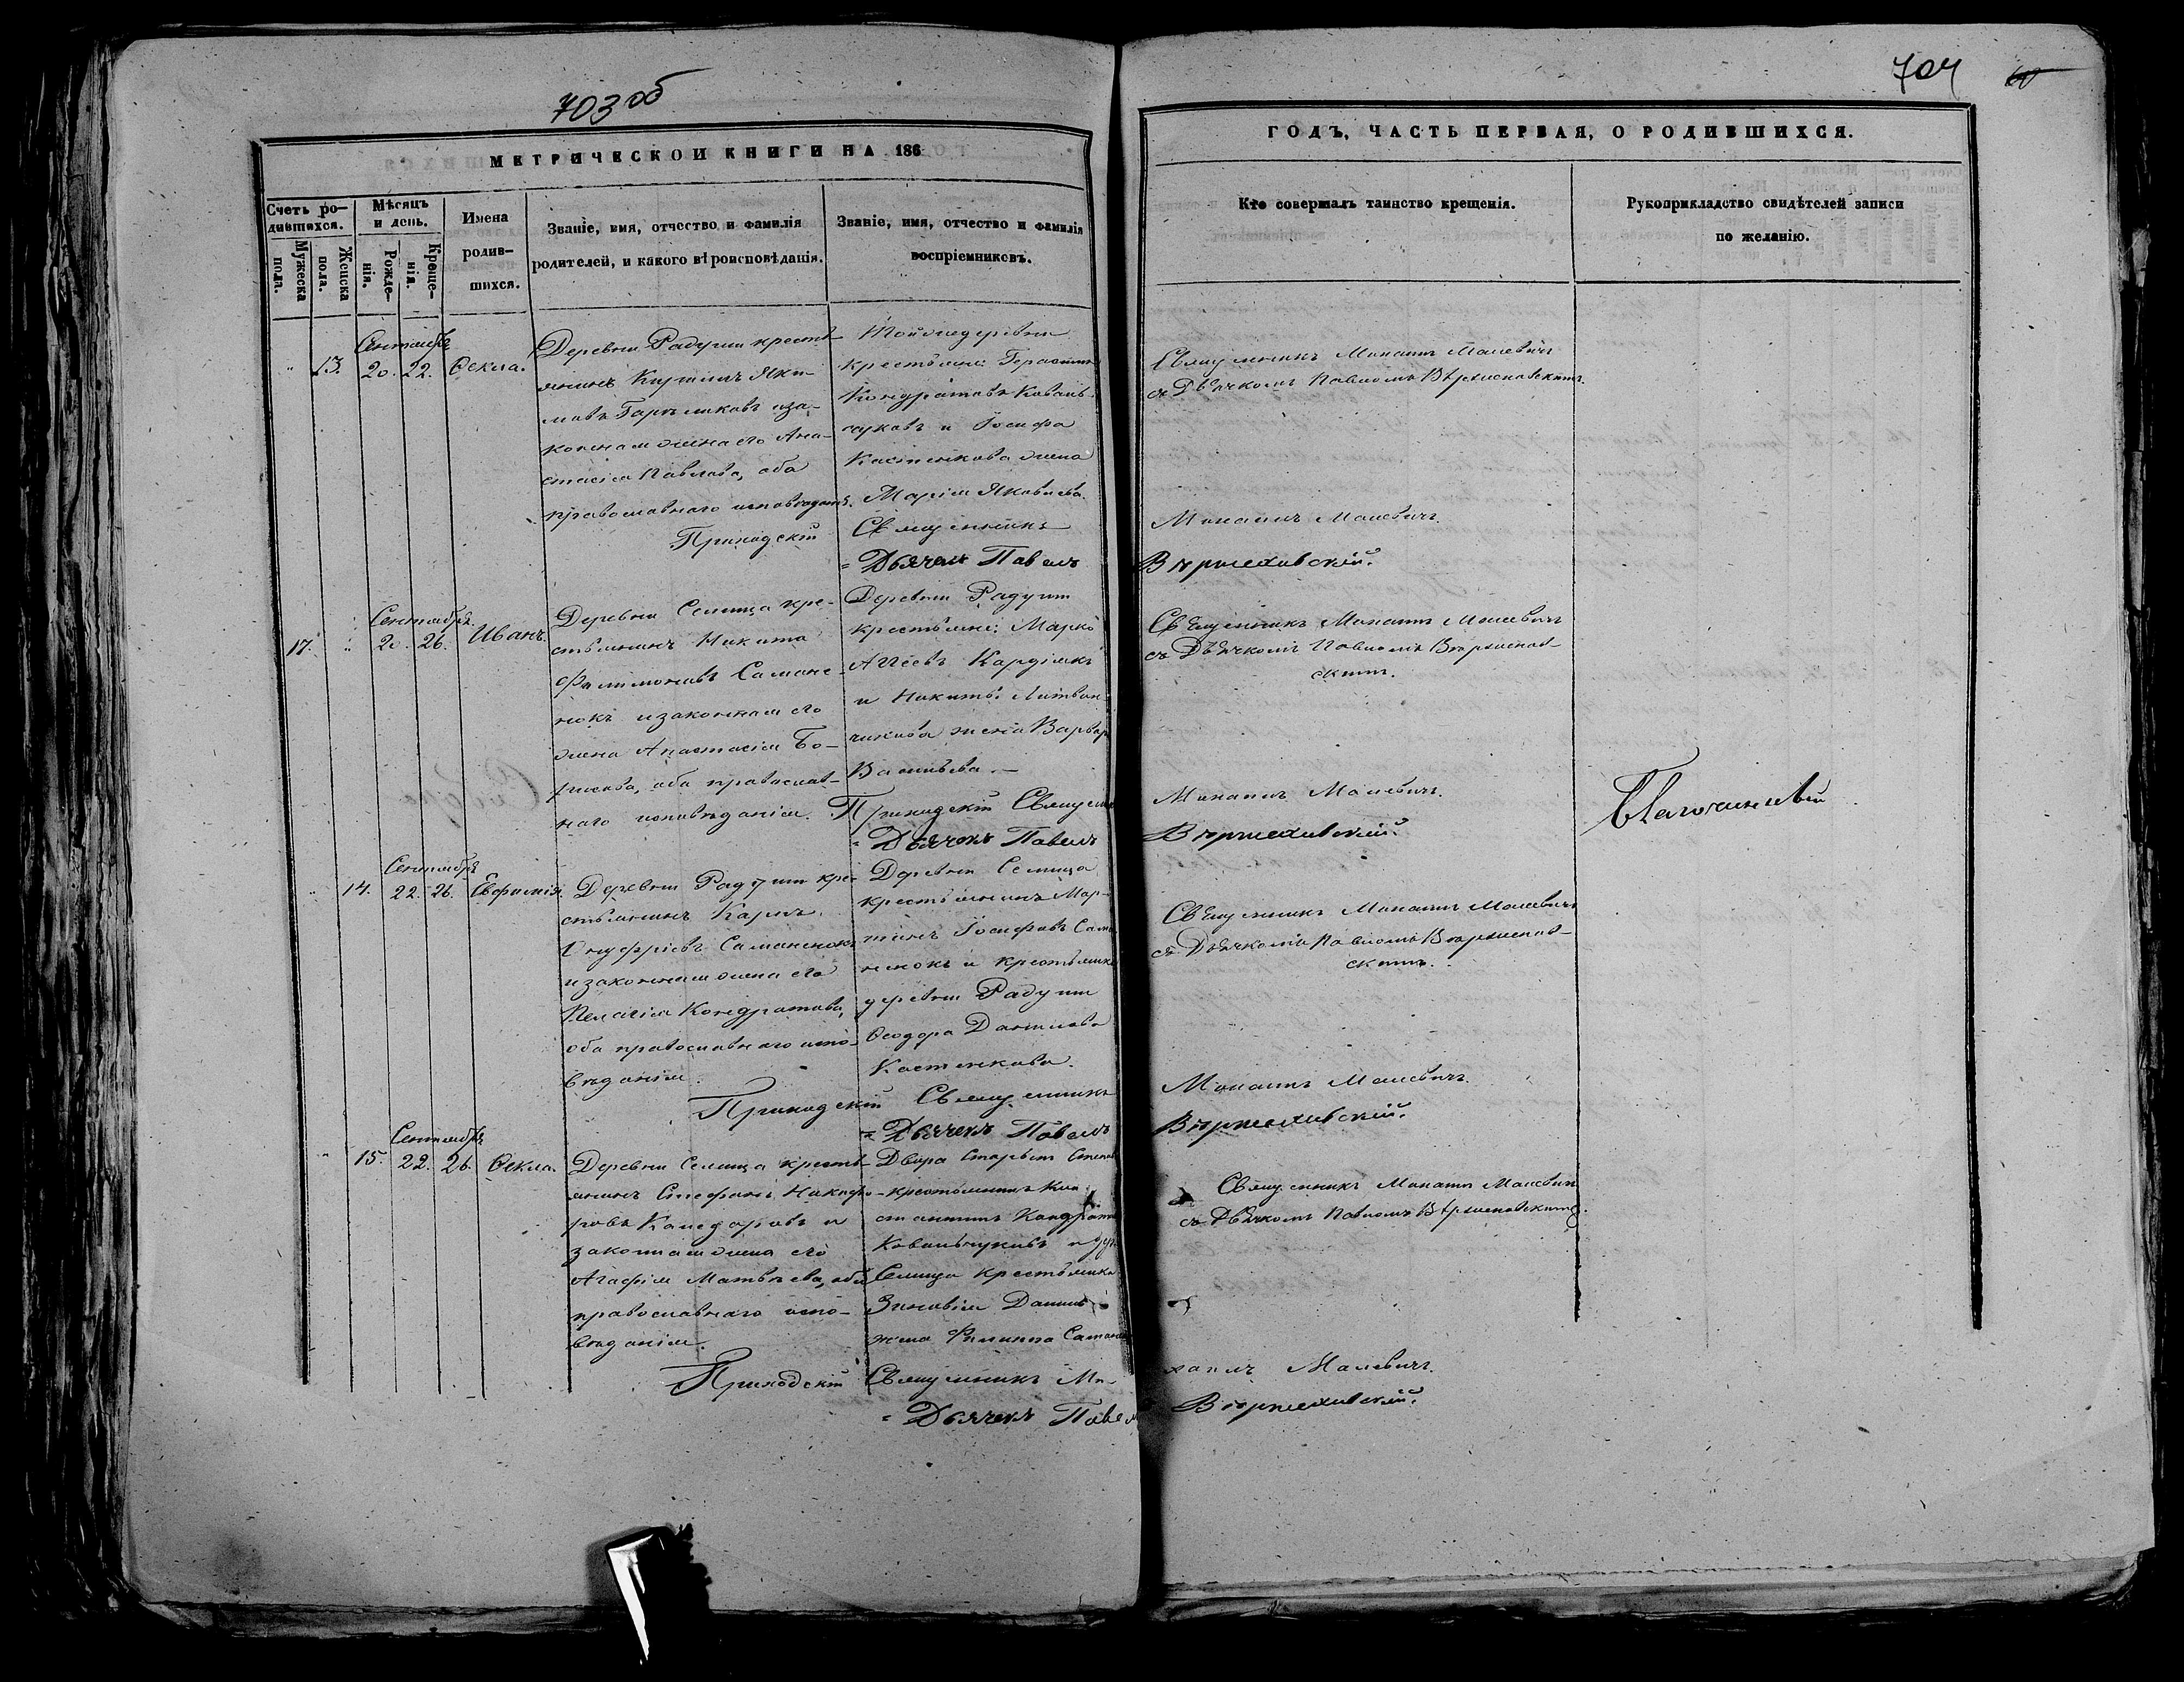 703 об
МЕТРИЧЕСКОЙ КНИГИ НА 186
Счетъ ро-
дившихся.
Мужеска
пола.
Женска
пола.
Мѣсяцъ
и день.
Рожде-
нія.
Креще-
нія.
Имена
родив-
шихся.
Званіе, имя, отчество и фамилія
родителей, и какого вѣроисповѣданія.
Званіе, имя, отчество и фамилія
воспріемниковъ.
" 13.
Сентябрь
20. 22.
Ѳекла.
Деревни Радуни кресть-
янинъ Кириллъ Яки-
мовъ
и за-
конная жена его Ана-
стасія Павлова, оба
православнаго исповѣданія.
Тойже деревни
крестьяне: Герасимъ
Кондратовъ Коваль-
чуковъ и Іосифа
Костюкова жена
Марія Яковлева.
Приходскій Священникъ
= Дьячекъ Павелъ
17. "
Сентябрь.
20. 26.
Иванъ.
Деревни Селища кре-
стьянинъ Никита
Филимоновъ
и законная его
жена Анастасія Бо-
рисова, оба православ-
наго исповѣданія.
Деревни Радуни
крестьяне: Марко
и Никиты
жена Варвара
Васильева.
Приходскій Священникъ
= Дьячокъ Павелъ
" 14.
Сентябрь
22. 26.
Евфимія.
Деревни Радуни кре-
стьянинъ Карпъ
Онуфріевъ
и законная жена его
Пелагія Кондратова,
оба православнаго испо-
вѣданія.
Деревни Селища
крестьянинъ Мар-
тинъ Іосифовъ
и крестьянка
деревни Радуни
Ѳеодора Данилова
Костюкова.
Приходскій Священникъ
= Дьячекъ Павелъ
" 15.
Сентябрь
22. 26.
Ѳекла.
Деревни Селища кресть-
янинъ Стефанъ Никифо-
ровъ
и
законная жена его
Агафія Матвѣева, оба
православнаго испо-
вѣданія.
Двора Старый
крестьянинъ Кон-
стантинъ Кондратовъ
Ковальчуковъ и дер.
Селища крестьянка
Зиновія
жена Филиппа
Приходскій Священникъ Ми-
= Дьячекъ Павелъ
704
60
ГОДЪ, ЧАСТЬ ПЕРВАЯ, О РОДИВШИХСЯ.
Кто совершалъ таинство крещенія.
Рукоприкладство свидѣтелей записи
по желанію.
Священникъ Михаилъ Малевичъ
съ Дьячкомъ Павломъ Вѣржеховскимъ.
Михаилъ Малевичъ.
Вѣржеховскій.
Священникъ Михаилъ Малевичъ
съ Дьячкомъ Павломъ Вѣржехов-
скимъ.
Михаилъ Малевичъ.
Вѣржеховскій.
Благочинный
Священникъ Михаилъ Малевичъ
съ Дьячкомъ Павломъ Вѣржехов-
скимъ.
Михаилъ Малевичъ.
Вѣржеховскій.
Священникъ Михаилъ Малевичъ
съ Дьячкомъ Павломъ Вѣржеховскимъ.
хаилъ Малевичъ.
Вѣржеховскій.